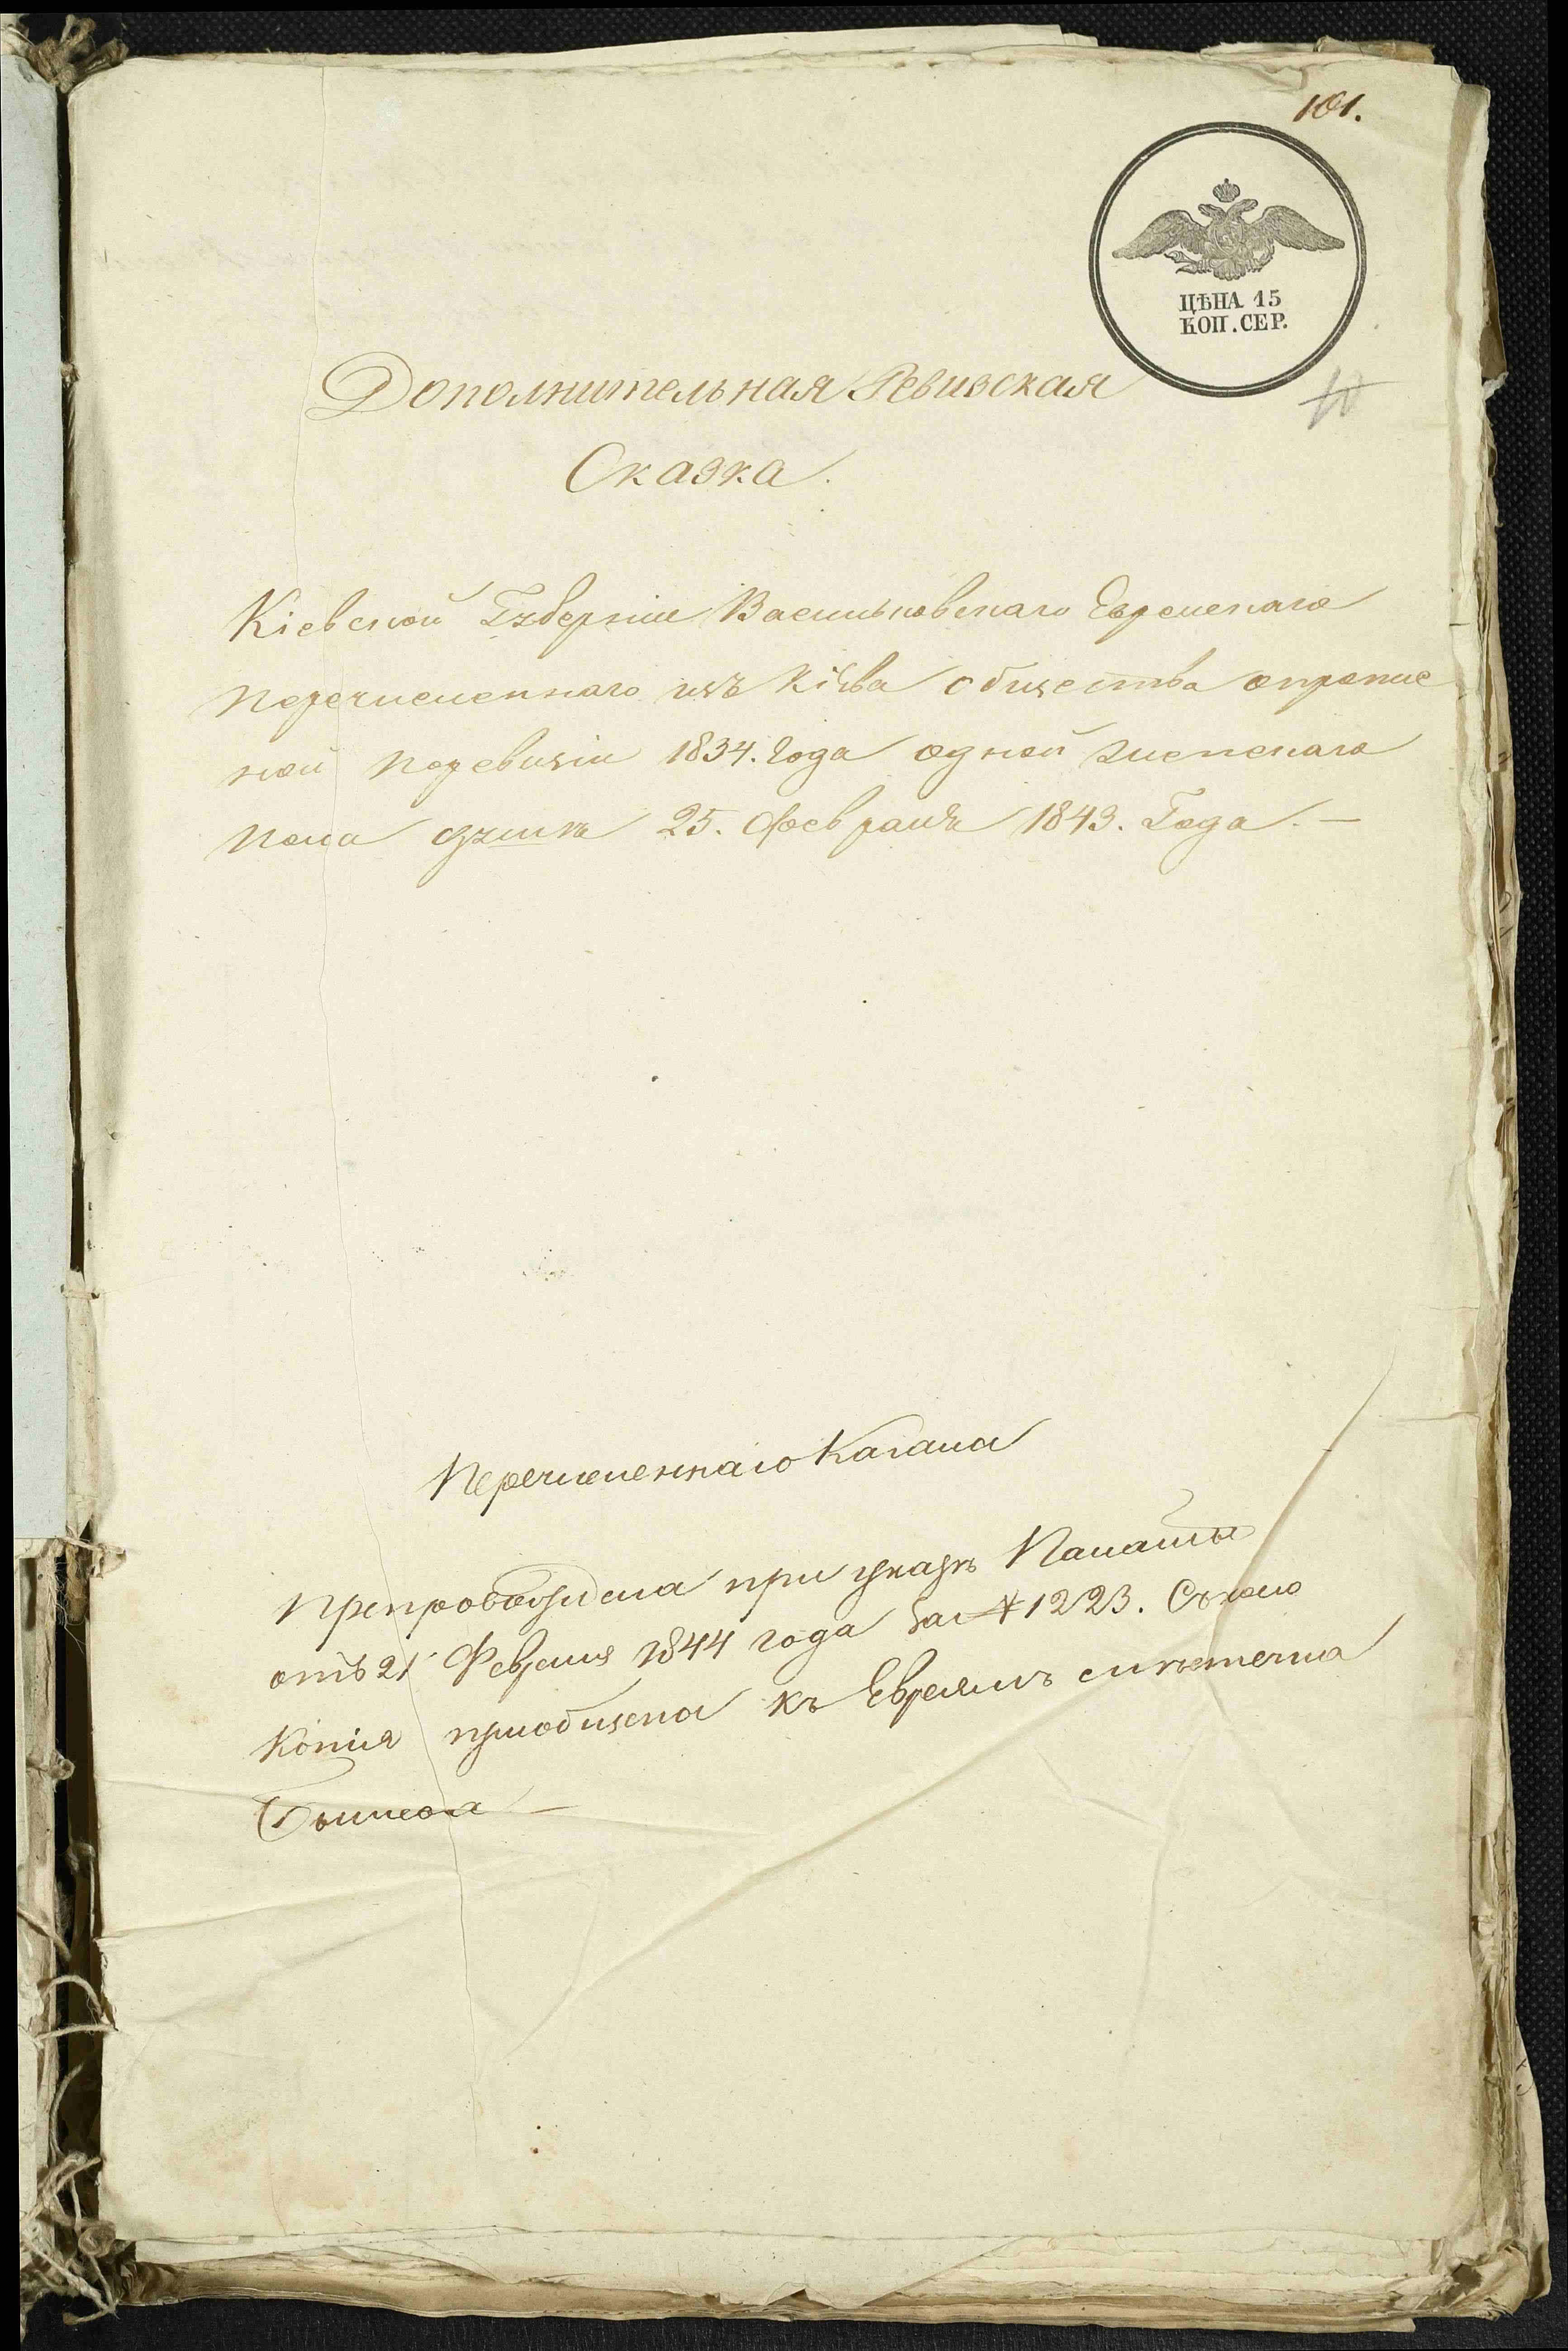 101.
ЦѢНА 15
КОП. СЕР.
Дополнительная Ревизская
Сказка.
Кіевской Губерніи Васильковскаго Еврейскаго
перечисленнаго изъ Кіева общества опропис
ной поревизіи 1834. Года одной женскаго
пола души 25. Февраля 1843. Года. —
Перечисленнаго Кагала
Препровождена при указѣ Палаты
отъ 21 Февраля 1844 года за № 1223. Съ коей
Копія пріобщена къ Евреямъ мѣстечка